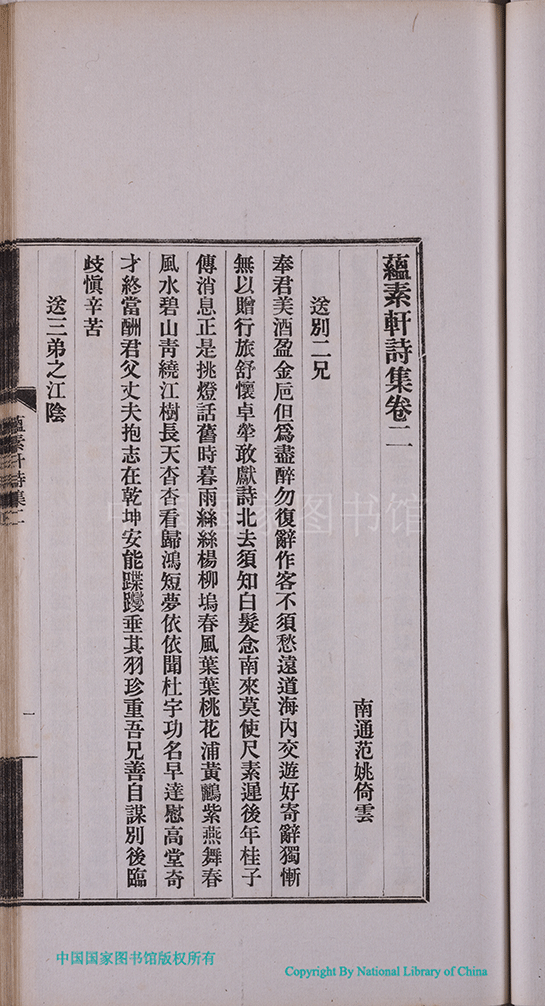 蘊素軒詩集卷二
南通范姚倚雲
送別二兄
奉君美酒盈金巵但爲盡醉勿復辭作客不須愁遠道海內交遊好寄辭獨慚
無以贈行旅舒懷卓犖敢獻詩北去須知白髮念南來莫使尺素遲後年桂子
傳消息正是挑燈話舊時暮雨絲絲楊柳塢春風葉葉桃花浦黃鸝紫燕舞春
風水碧山靑繞江樹長天杳杳看歸鴻短夢依依聞杜宇功名早達慰高堂奇
才終當酬君父丈夫抱志在乾坤安能蹀躞垂其羽珍重吾兄善自謀別後臨
歧愼辛苦
送三弟之江陰
蘊素軒詩集二
一
中国国家图书馆
中国国家图书馆版权所有
Copyright By National Library of China